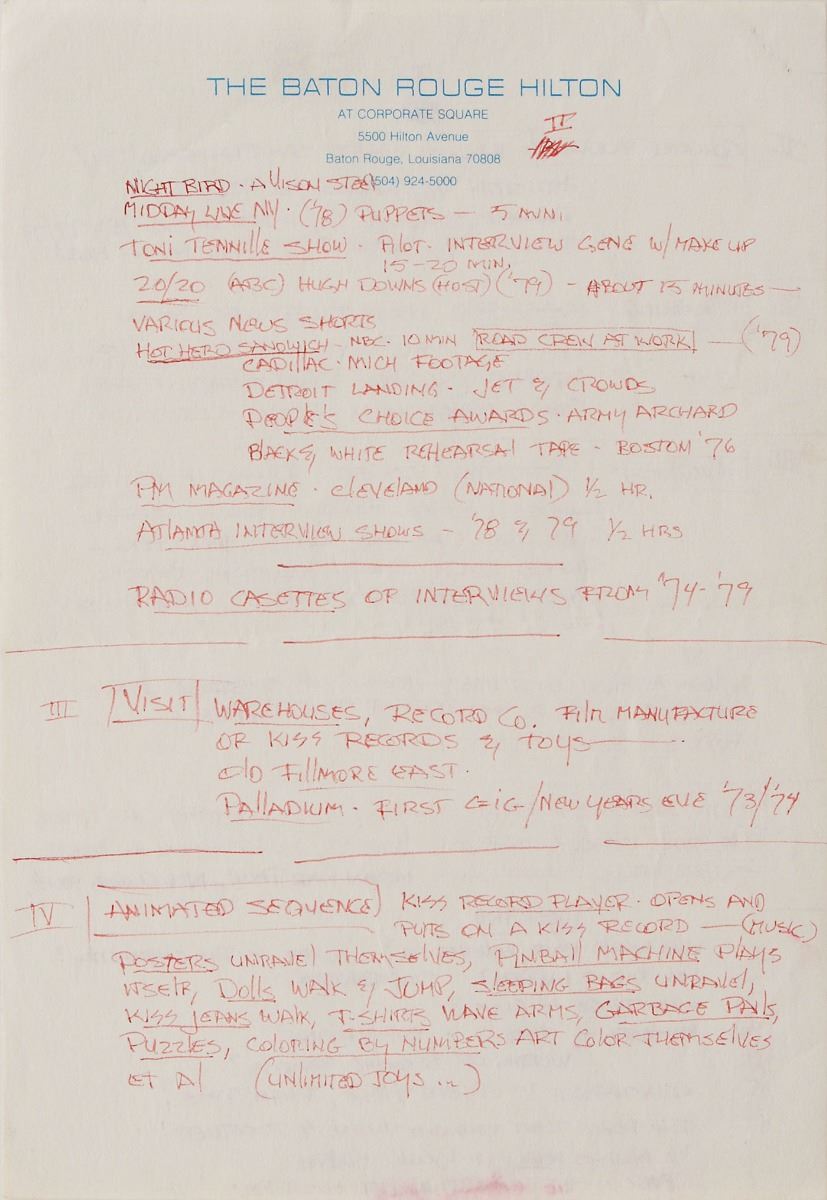 THE BATON ROUGE HILTON
AT CORPORATE SQUARE
5500 Hilton Avenue
Baton Rouge, Louisiana 70808
(504) 924-5000
II
NIGHT BIRD · ALLISON STEEL
MIDDAY LIVE NY · ('78) PUPPETS — 5 MIN.
TONI TENNILLE SHOW · PILOT · INTERVIEW GENE W/ MAKE UP
15-20 MIN.
20/20 (ABC) HUGH DOWNS (HOST) ('79) - ABOUT 15 MINUTES —
VARIOUS NEWS SHORTS
HOT HERO SANDWICH - NBC · 10 MIN ROAD CREW AT WORK — ('79)
CADILLAC · MICH FOOTAGE
DETROIT LANDING · JET & CROWDS
PEOPLE'S CHOICE AWARDS · ARMY ARCHARD
BLACK & WHITE REHEARSAL TAPE - BOSTON '76
PM MAGAZINE · CLEVELAND (NATIONAL) 1/2 HR.
ATLANTA INTERVIEW SHOWS - '78 & '79 1/2 HRS
RADIO CASETTES OF INTERVIEWS FROM '74-'79
III VISIT WAREHOUSES, RECORD CO. FILM MANUFACTURE
OF KISS RECORDS & TOYS —
OLD FILLMORE EAST ·
PALLADIUM · FIRST GIG/NEW YEARS EVE '73/'74
IV ANIMATED SEQUENCE) KISS RECORD PLAYER · OPENS AND
PUTS ON A KISS RECORD — (MUSIC)
POSTERS UNRAVEL THEMSELVES, PINBALL MACHINE PLAYS
ITSELF, DOLLS WALK & JUMP, SLEEPING BAGS UNRAVEL,
KISS JEANS WALK, T-SHIRTS WAVE ARMS, GARBAGE PAILS,
PUZZLES, COLORING BY NUMBERS ART COLOR THEMSELVES
ET AL (UNLIMITED TOYS ...)